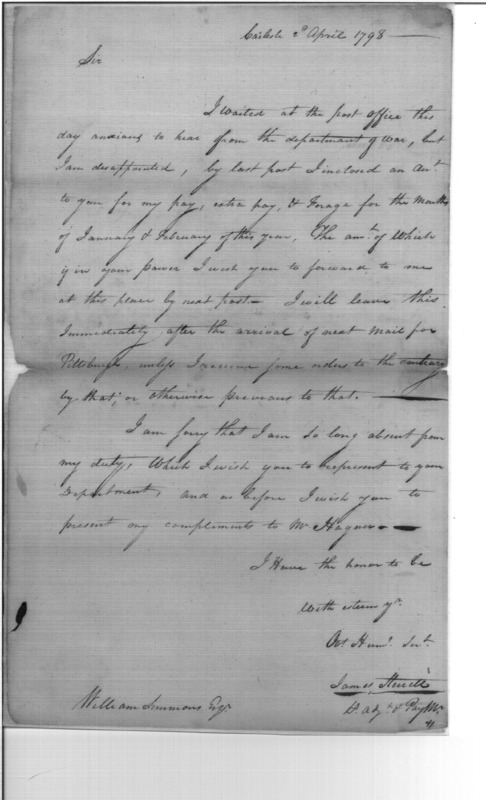 Carlisle 2d April 1798
Sir
I waited at the post office this
day anxious to hear from the department of war, but
I am disappointed, by last post I inclosed an Act.
to you for my pay, extra pay, & Forage for the Months
of January & February of this year, The amt. of Which
if in your power I wish you to forward to me
at this place by next post— I will leave this
Immediately after the arrival of next Mail for
Pittsburgh, unless I receive some orders to the contrary
by that, or otherwise previous to that.
I am sorry that I am so long absent from
my duty, Which I wish you to represent to your
Department, and as before I wish you to
present my compliments to Mr Hagner.
I Have the honor to be
With esteem yr.
Ob. Hum. Sert.
James
Lt. adjt. & PayMr.
William Simmons Esqr.